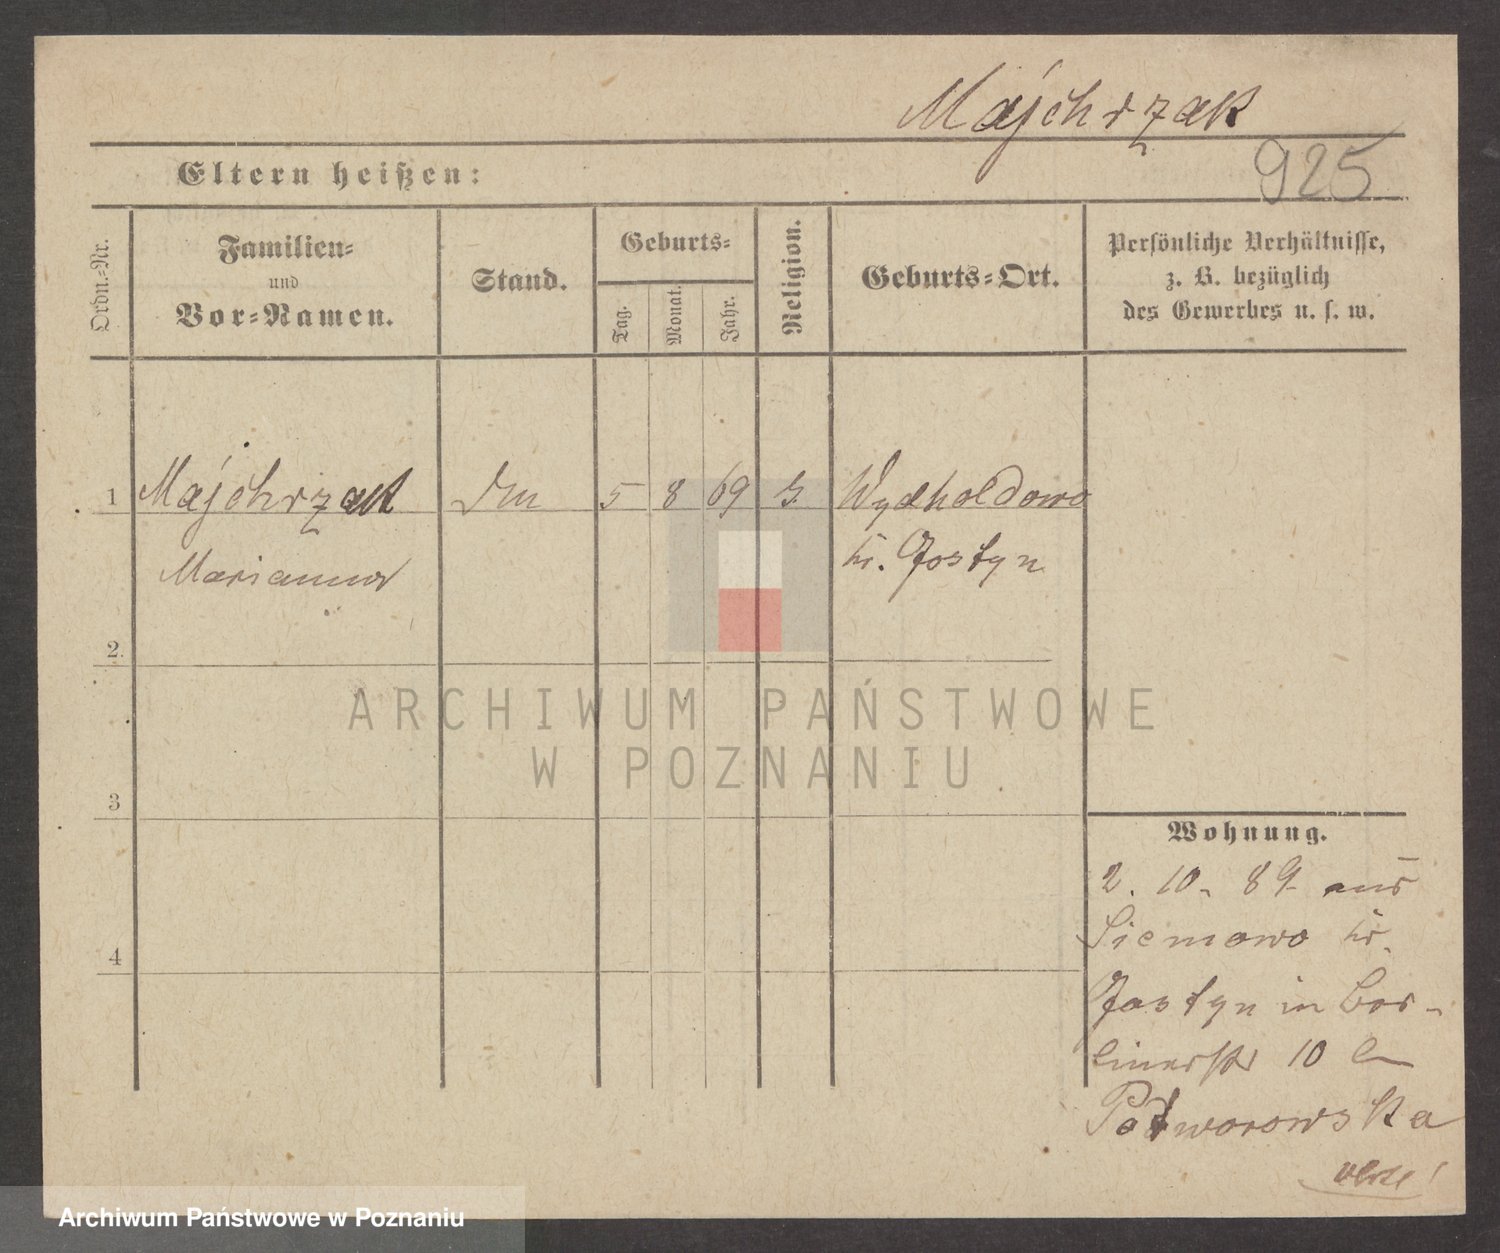 Majchrzak
925
Eltern heißen:
Ordn.-Nr.
Familien-
und
Vor-Namen.
Stand.
Geburts-
Tag.
Monat.
Jahr.
Religion.
Geburts-Ort.
Persönliche Verhältnisse,
z. B. bezüglich
des Gewerbes u. s. w.
1 Majchrzak 5 8 69
Marianna
Kr. Gostyn
2.
3
4
Wohnung.
2. 10. 89 aus
Siemowo Kr.
Gostyn in Ber-
linerstr 10
Potworowska
ARCHIWUM PAŃSTWOWE
W POZNANIU
Archiwum Państwowe w Poznaniu